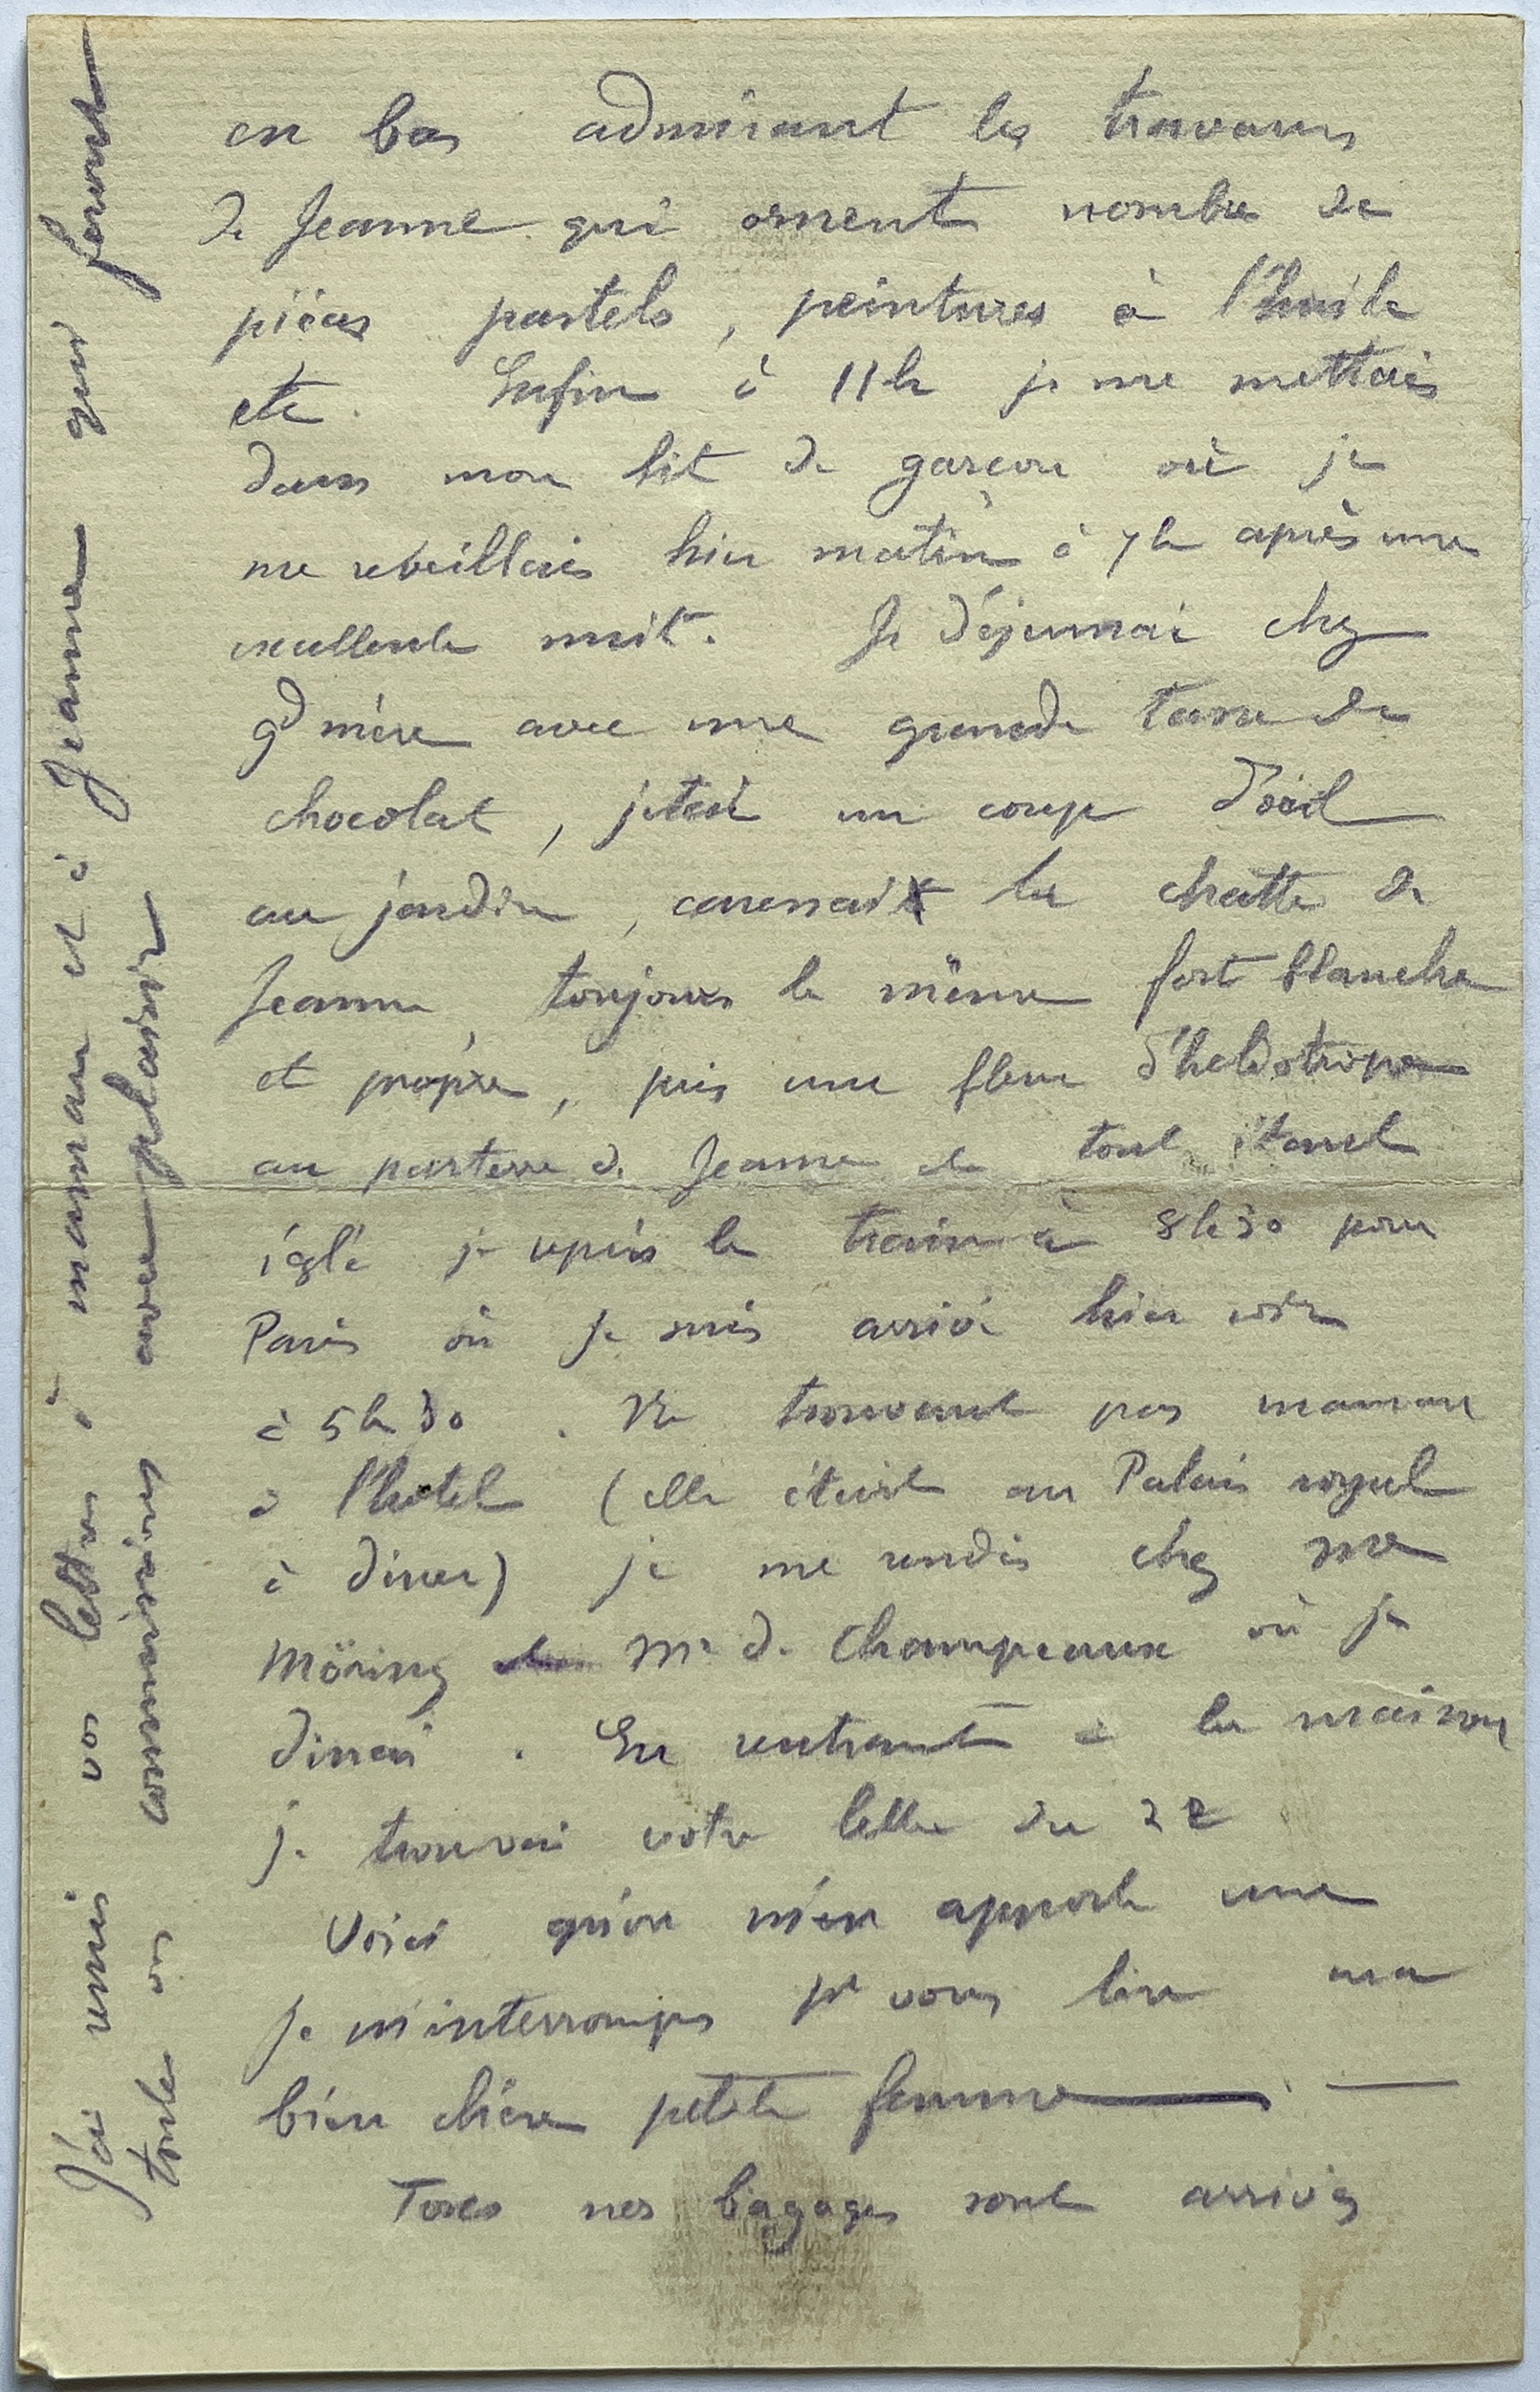 en bas admirant les travaux
de Jeanne qui ornent nombre de
pièces pastels, peintures à l'huile
etc. Enfin à 11h je me mettais
dans mon lit de garçon où je
me réveillais hier matin à 7h après une
excellente nuit. Je déjeunai chez
gd mère avec une grande tasse de
chocolat, jetai un coup d'œil
au jardin, caressai la chatte de
Jeanne, toujours la même fort blanche
et propre, pris une fleur d'héliotrope
au parterre de Jeanne et tout étant
réglé je repris le train à 8h30 pour
Paris où je suis arrivé hier soir
à 5h30. Ne trouvant pas maman
à l'hotel (elle était au Palais royal
à diner) je me rendis chez me
Möring Mr de Champeaux où je
dinai. En rentrant à la maison
je trouvai votre lettre du 22
Voici qu'on m'en apporte une
je m'interromps pr vous lire ma
bien chère petite femme —
Tous nos bagages sont arrivés
J'ai remis vos lettres à maman et à Jeanne qui feront
toutes vos commissions avec plaisir